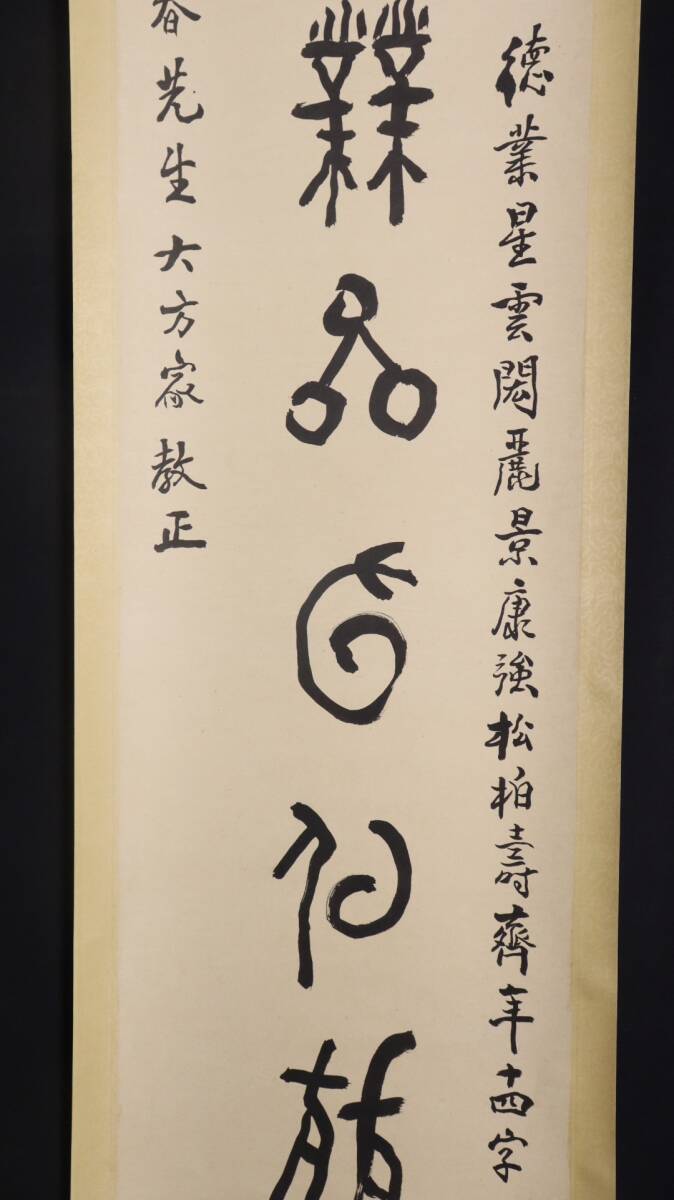 德業星雲閎麗景康強松柏壽齊年十四字
業星雲閎麗
春先生大方家教正